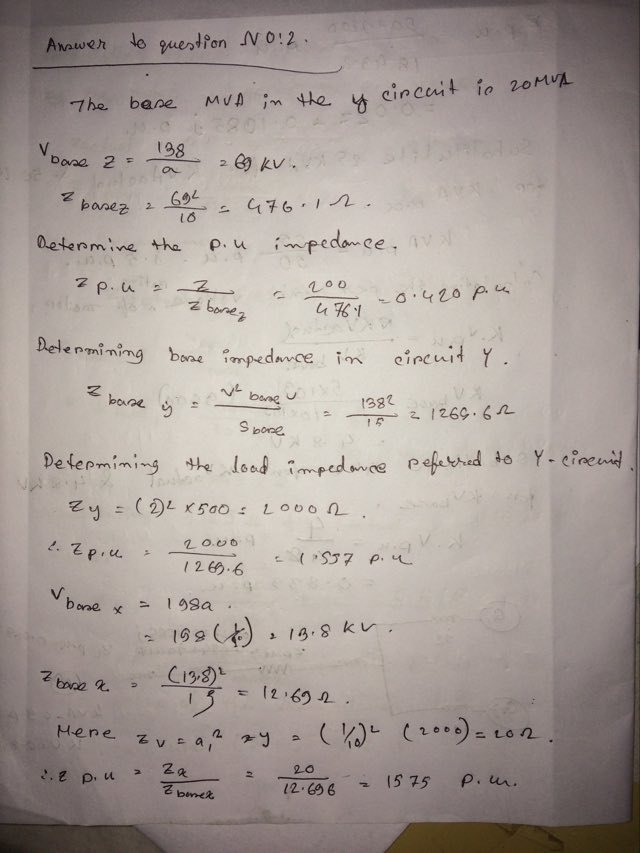 Answer to question NO:2.
The base MVA in the y circuit is 20MVA
V base z = 138/a = 69 KV.
Z base z = 69²/10 = 476.1 Ω.
Determine the p.u impedance.
Z p.u = Z/Z base z = 200/476.1 = 0.420 p.u
Determining base impedance in circuit Y.
Z base y = V² base v/S base = 138²/15 = 1269.6 Ω
Determining the load impedance referred to Y-circuit.
Zy = (2)² × 500 = 2000 Ω.
∴ Z p.u = 2000/1269.6 = 1.557 p.u
V base x = 198a.
= 198 (1/10) = 13.8 KV.
Z base x = (13.8)²/15 = 12.69 Ω.
Here Zv = a₁² zy = (1/10)² (2000) = 20 Ω.
∴ Z p.u = Zx/Z base x = 20/12.696 = 1575 p.u.